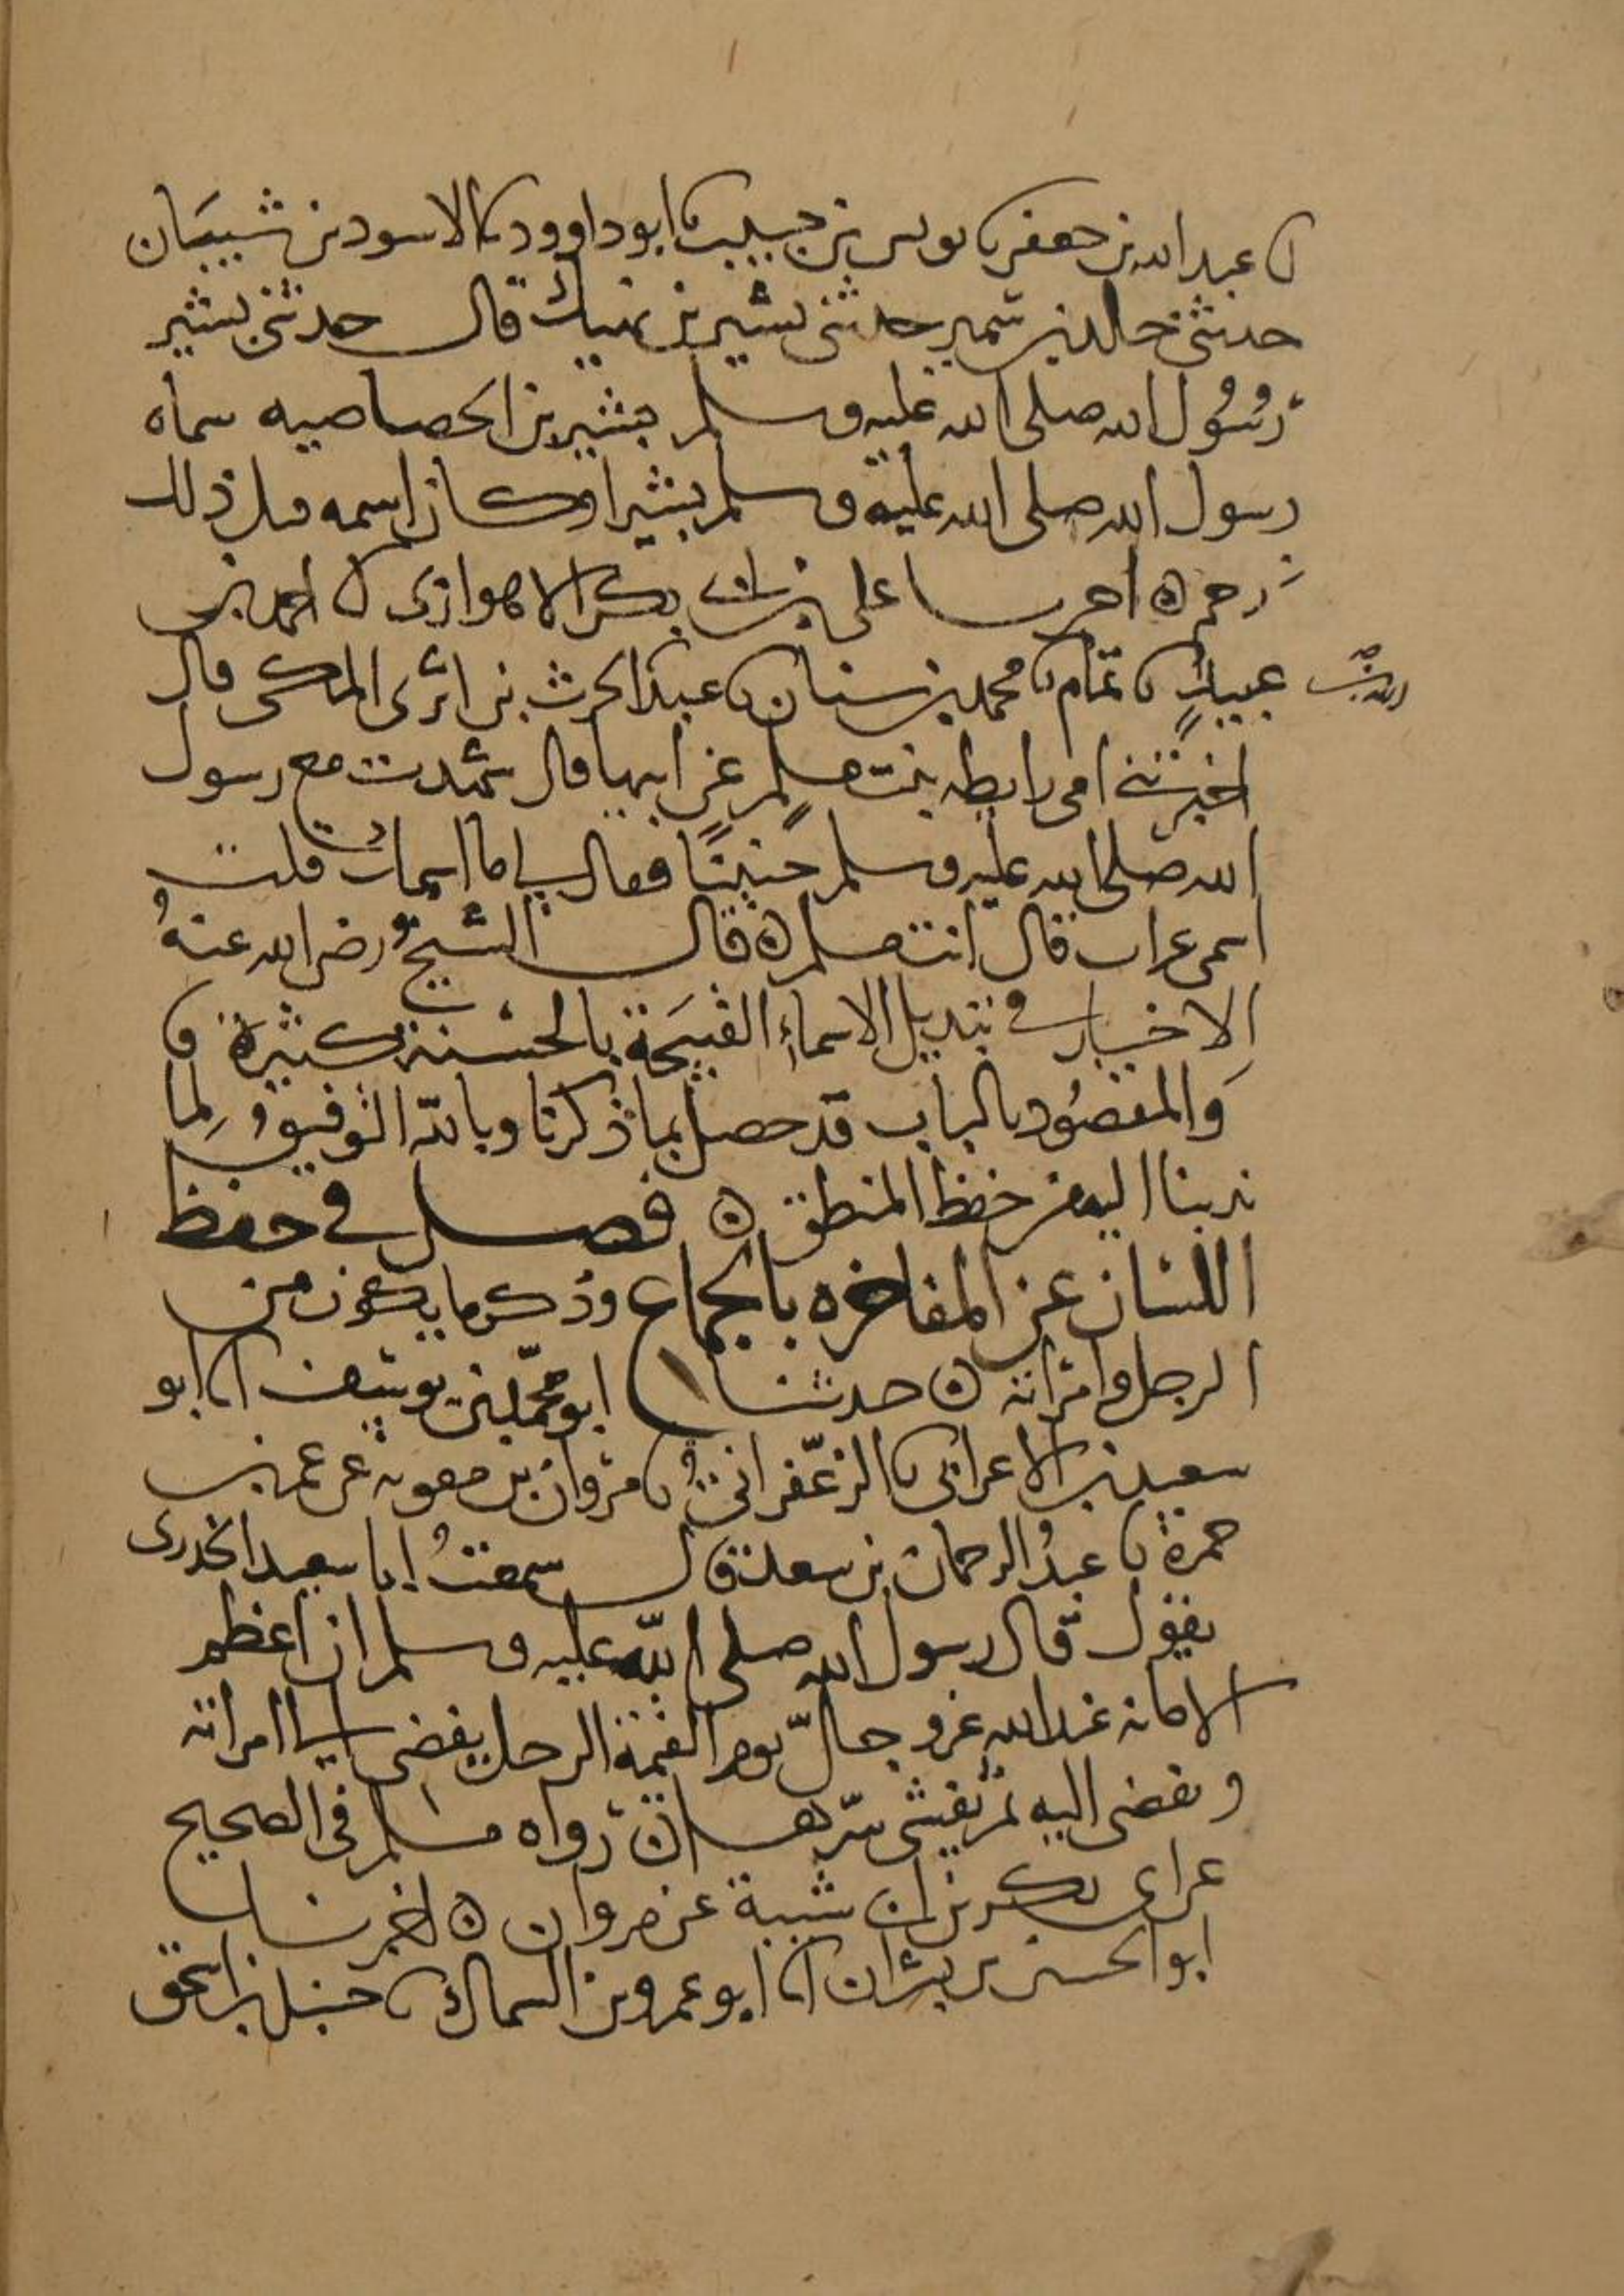 نا عبد الله بن جعفر نا يونس بن حبيب نا ابو داوود نا الاسود بن شيبان
حدثني خالد بن سمير حدثني بشير بن نهيك قال حدثني بشير
رسول الله صلى الله عليه وسلم بشير بن الخصاصيه سماه
رسول الله صلى الله عليه وسلم بشيرا وكان اسمه قبل ذلك
زحم ه اخبرنا علي بن احمد بكر الاهوازي انا احمد بن
عبيد نا تمام نا محمد بن سنان نا عبد الحرث بن ابزى المكي قال
اخبرتني امي رايطه بنت مسلم عن ابيها قال شهدت مع رسول
الله صلى الله عليه وسلم حنينا فقال لي ما اسمك قلت
اسمي غراب قال انت مسلم ه قال الشيخ رضي الله عنه
الاخبار في تبديل الاسماء القبيحة بالحسنة كثيرة
والمقصود بالباب قد حصل بما ذكرنا وبالله التوفيق لما
ندبنا اليه من حفظ المنطق ه فصل في حفظ
اللسان عن المفاخره بالجماع وذكر ما يكون من
الرجل وامراته ه حدثنا ابو محمد بن يوسف انا ابو
سعيد بن الاعرابي نا الزعفراني نا مروان بن معوية عن عمر بن
حمزة نا عبد الرحمان بن سعد قال سمعت ابا سعيد الخدري
يقول قال رسول الله صلى الله عليه وسلم ان اعظم
الامانة عند الله عز وجل يوم القيمة الرجل يفضي الى امراته
وتفضي اليه ثم يفشي سرها ه رواه مسلم في الصحيح
عن ابي بكر بن ابي شيبة عن مروان ه اخبرنا
ابو الحسين بن بشران انا ابو عمرو بن السماك نا حنبل بن اسحق